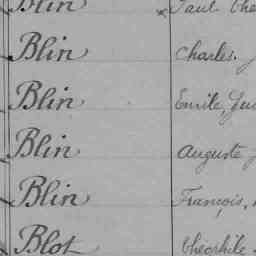 Blin Paul
Blin Charles.
Blin Emile,
Blin Auguste
Blin François,
Blot Théophile